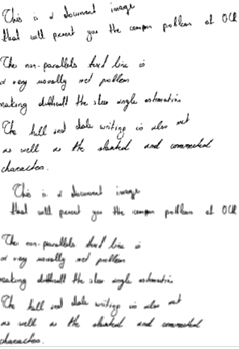 This is a document image
that will you the common problem of OCR
The non-parallels text line is
a very usually met problem
making difficult the slew angle estimation
The hill and dale writing is also met
as well as the slanted and connected
characters.
This is a document image
that will you the common problem of OCR
The non-parallels text line is
a very usually met problem
making difficult the slew angle estimation
The hill and dale writing is also met
as well as the slanted and connected
characters.